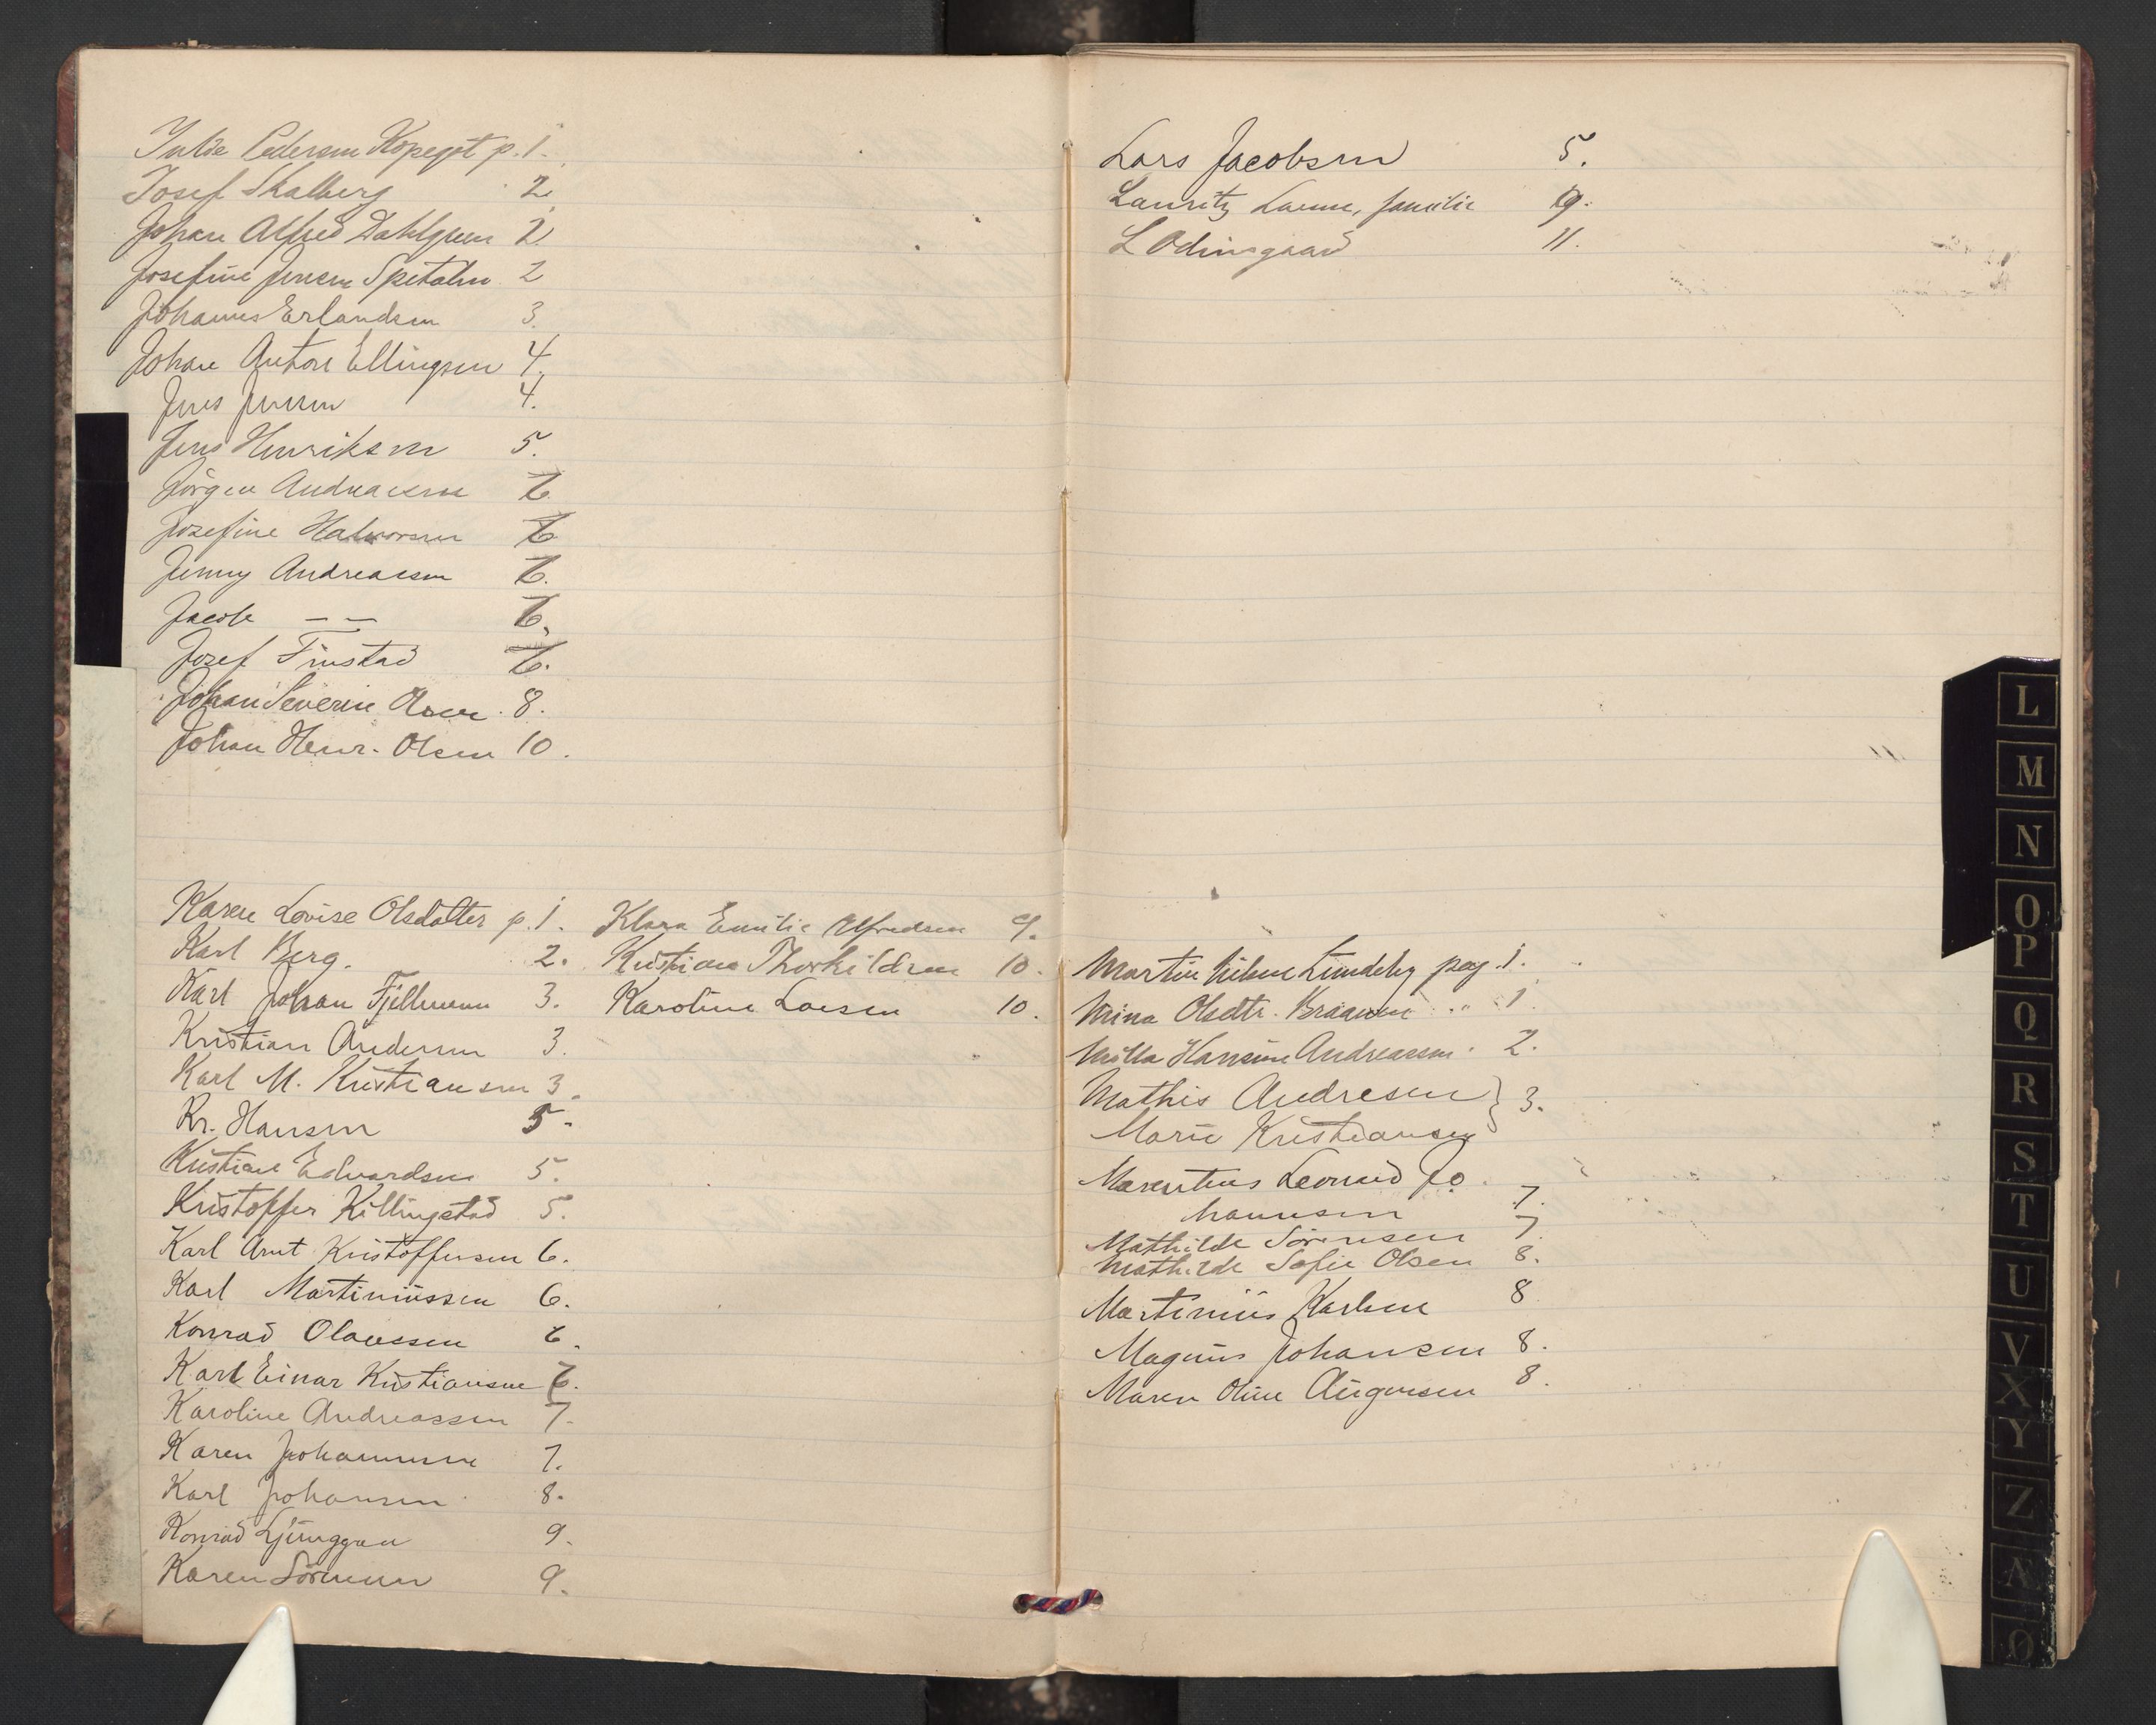 Julie Pedersen Kopegot p. 1.
Josef Skalberg 2.
Johan Alfred Dahlgreen 2
Josefine Jensen Spetalen 2
Johannes Erlandsen 3.
Johan Anton Ellingsen 4.
Jens Jensen 4.
Jens Henriksen 5.
Jörgen Andreassen 6.
Josefine Halvorsen 6
Jenny Andreassen 6.
Jacob — — 6.
Josef Finstad 6.
Johan Severin Olsen 8.
Johan Henr. Olsen 10.
Karen Lovise Olsdatter p. 1.
Karl Berg. 2.
Karl Johan Fjellmann 3.
Kristian Andersen 3.
Karl M. Kristiansen 3.
Kr. Hansen 5.
Kristian Edvardsen 5.
Kristoffer Killingstad 5.
Karl Arnt Kristoffersen 6.
Karl Martiniussen 6.
Konrad Olaussen 6.
Karl Einar Kristiansen 6.
Karoline Andreassen 7.
Karen Johannessen 7.
Karl Johansen 8.
Konrad Ljunggren 9.
Karen Sörensen 9.
Klara Emilie Alfredsen 9.
Kristian Thorkildsen 10.
Karoline Larsen 10.
Lars Jacobsen 5.
Lauritz familie 9.
L Odinsgaard 11.
Martin Nilsen Lundeby pag. 1.
Mina Olsdtr. Braaten " 1
Milla Hansine Andreassen. 2.
Mathis Andresen } 3.
Marie Kristiansen
Marentius Leonard Jo
hannesen 7.
Mathilde Sörensen 7.
Mathilde Sofie Olsen 8.
Martinius Karlsen 8
Magnus Johansen 8.
Maren Oline Augensen 8.
L
M
N
O
P
Q
R
S
T
U
V
X
Y
Z
Æ
Ø